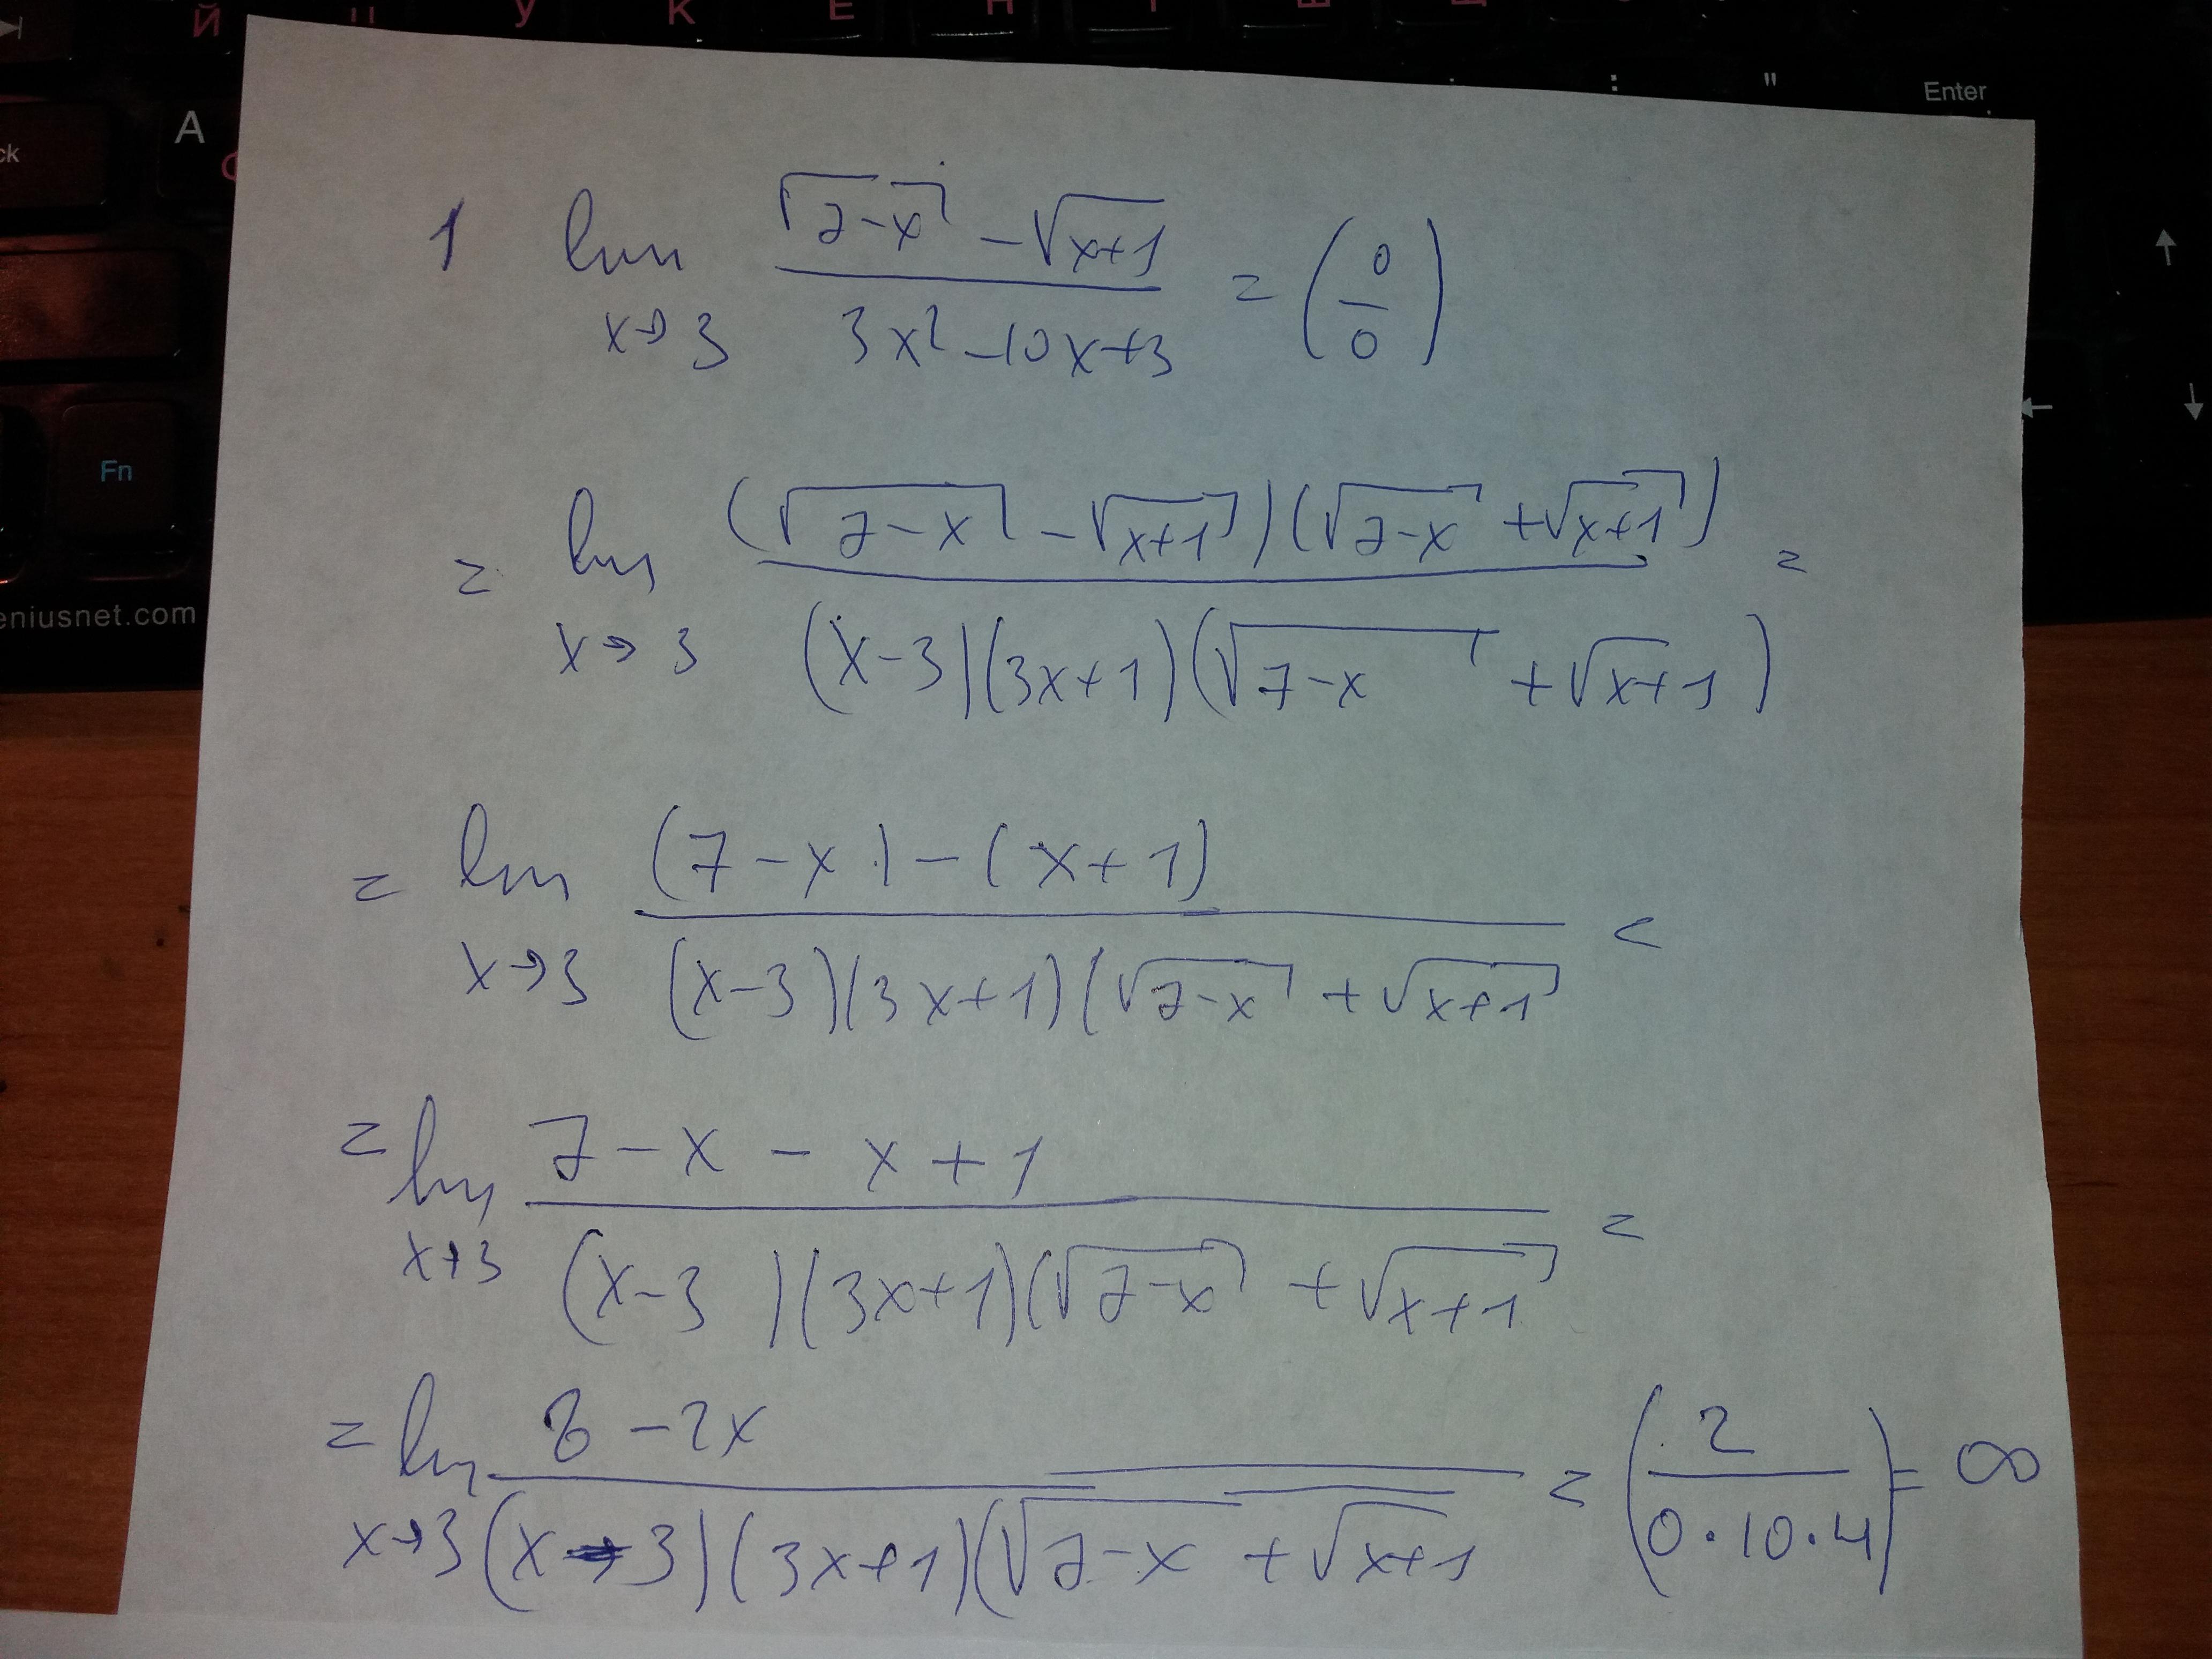 Й Ц У К Е Н Г Ш Щ
: " Enter
ck A
Fn
eniusnet.com
1 lim x→3 (√(7-x) - √(x+1)) / (3x² - 10x + 3) = (0/0)
= lim x→3 ((√(7-x) - √(x+1))(√(7-x) + √(x+1))) / ((x-3)(3x+1)(√(7-x) + √(x+1))) =
= lim x→3 ((7-x) - (x+1)) / ((x-3)(3x+1)(√(7-x) + √(x+1)) =
= lim x→3 (7 - x - x + 1) / ((x-3)(3x+1)(√(7-x) + √(x+1)) =
= lim x→3 (8 - 2x) / ((x-3)(3x+1)(√(7-x) + √(x+1)) = (2 / (0·10·4)) = ∞